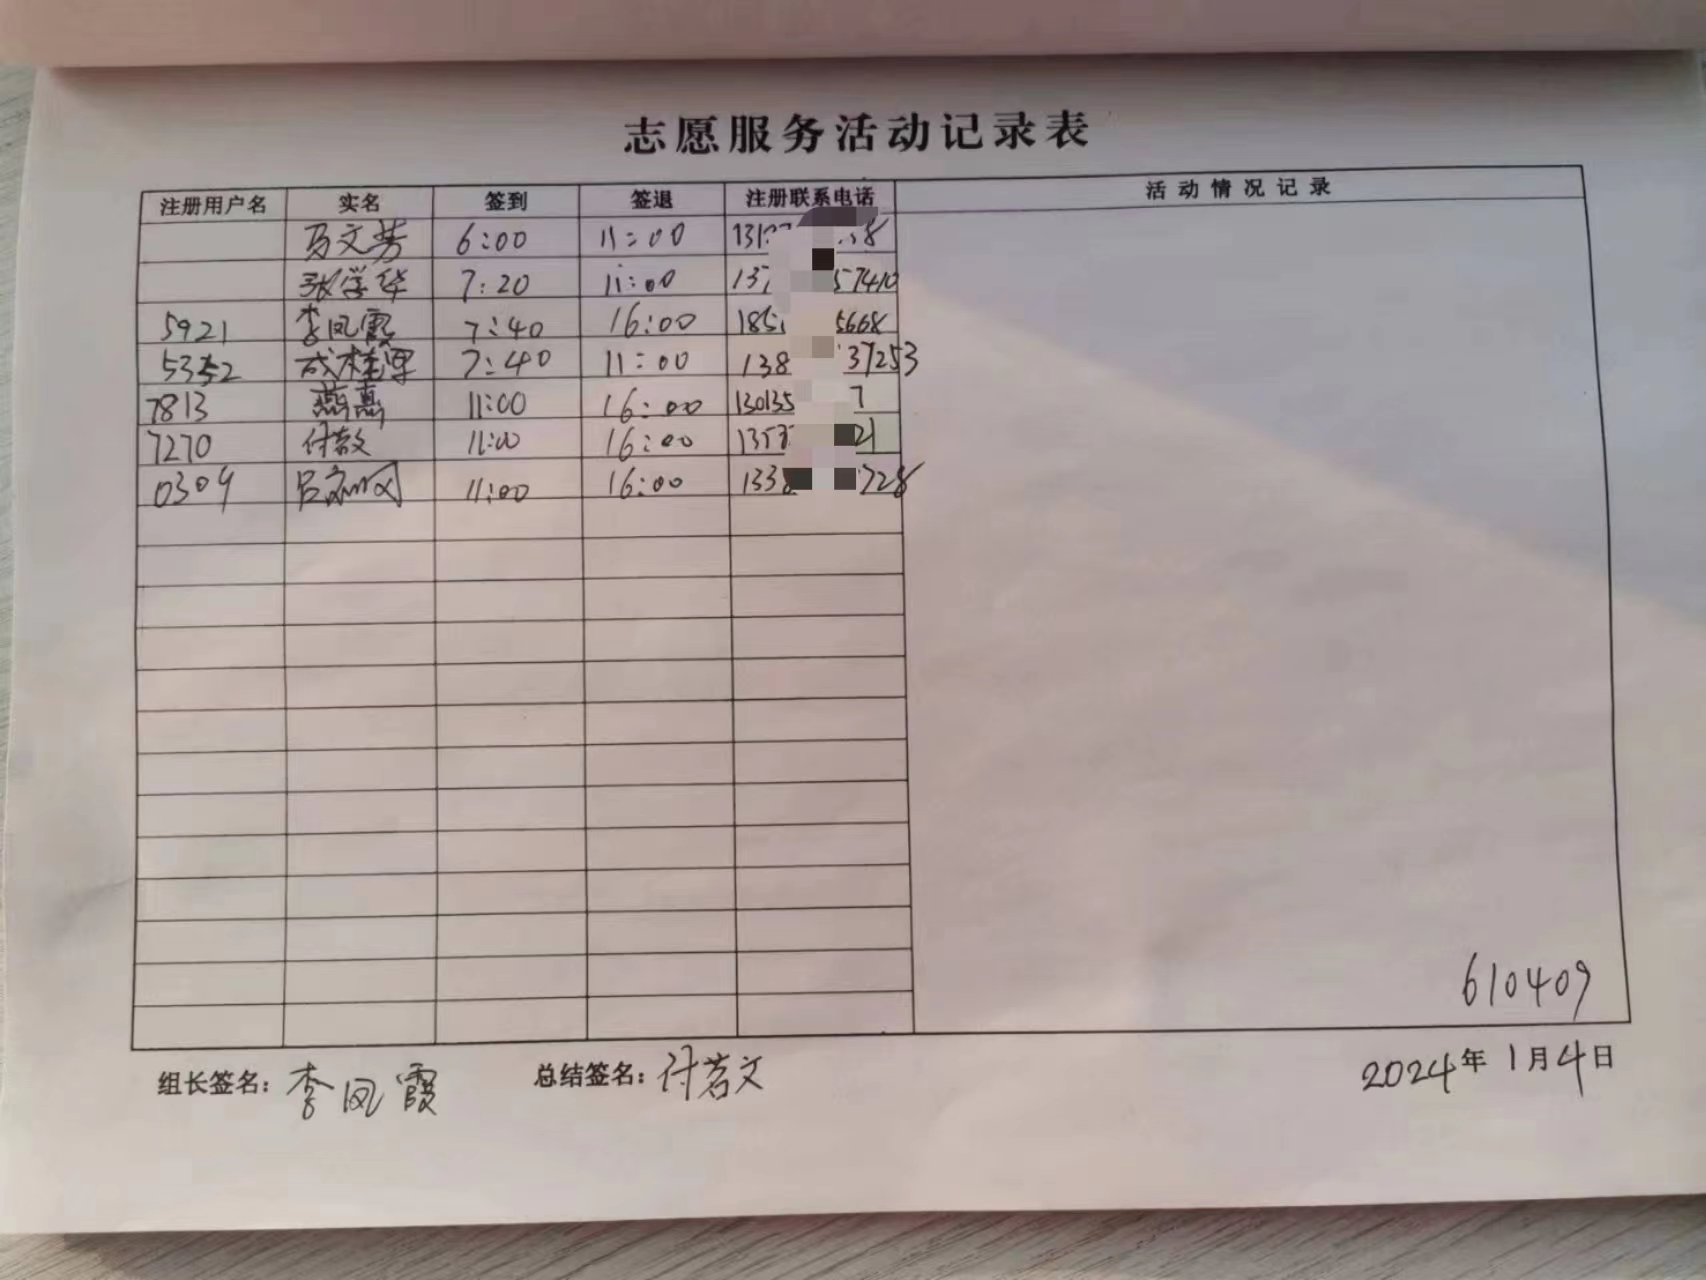 志愿服务活动记录表
注册用户名 实名 签到 签退 注册联系电话 活动情况记录
马文芳 6:00 11:00
张学华 7:20 11:00 57410
5921 李凤霞 7:40 16:00 185 5668
5352 成桂军 7:40 11:00 138 37253
7813 燕燕 11:00 16:00 130135 7
7270 付若文 11:00 16:00 21
0309 吕 11:00 16:00 133 728
610409
组长签名：李凤霞 总结签名：付若文 2024年1月4日